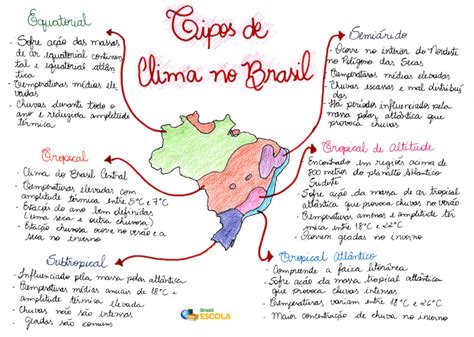 Tipos de
Clima no Brasil
Equatorial
- Sofre ação das massas
de ar equatorial continen
tal e equatorial atlân
tica
- Temperaturas médias ele
vadas
- Chuvas durante todo o
ano e reduzida amplitude
térmica
Tropical
- Clima do Brasil Central
- Temperaturas elevadas com
amplitude térmica entre 5°C e 7°C
- Estação do ano bem definidas
(uma seca e outra chuvosa)
- Estação chuvosa ocorre no verão e a
seca no inverno
Subtropical
- Influenciado pela massa polar atlântica
- Temperaturas médias anuais de 18°C =
amplitude térmica elevada
- Chuvas não são intensas
- Geadas são comuns
Semiárido
- Ocorre no interior do Nordeste
no Polígono das Secas
- Temperaturas médias elevadas
- Chuvas escassas e mal distribuí
das
- Há períodos influenciados pela
massa polar atlântica que
provoca chuvas
Tropical de Altitude
- Encontrado em regiões acima de
800 metros do planalto Atlântico
Sudeste
- Sofre ação da massa de ar tropical
atlântica que provoca chuvas no verão
- Temperaturas amenas e amplitude tér
mica entre 18°C e 22°C
- Ocorrem geadas no inverno
Tropical Atlântico
- Compreende a faixa litorânea
- Sofre ação da massa tropical atlântica
que provoca chuvas intensas
- Temperaturas variam entre 18°C e 26°C
- Maior concentração de chuva no inverno
Brasil
ESCOLA